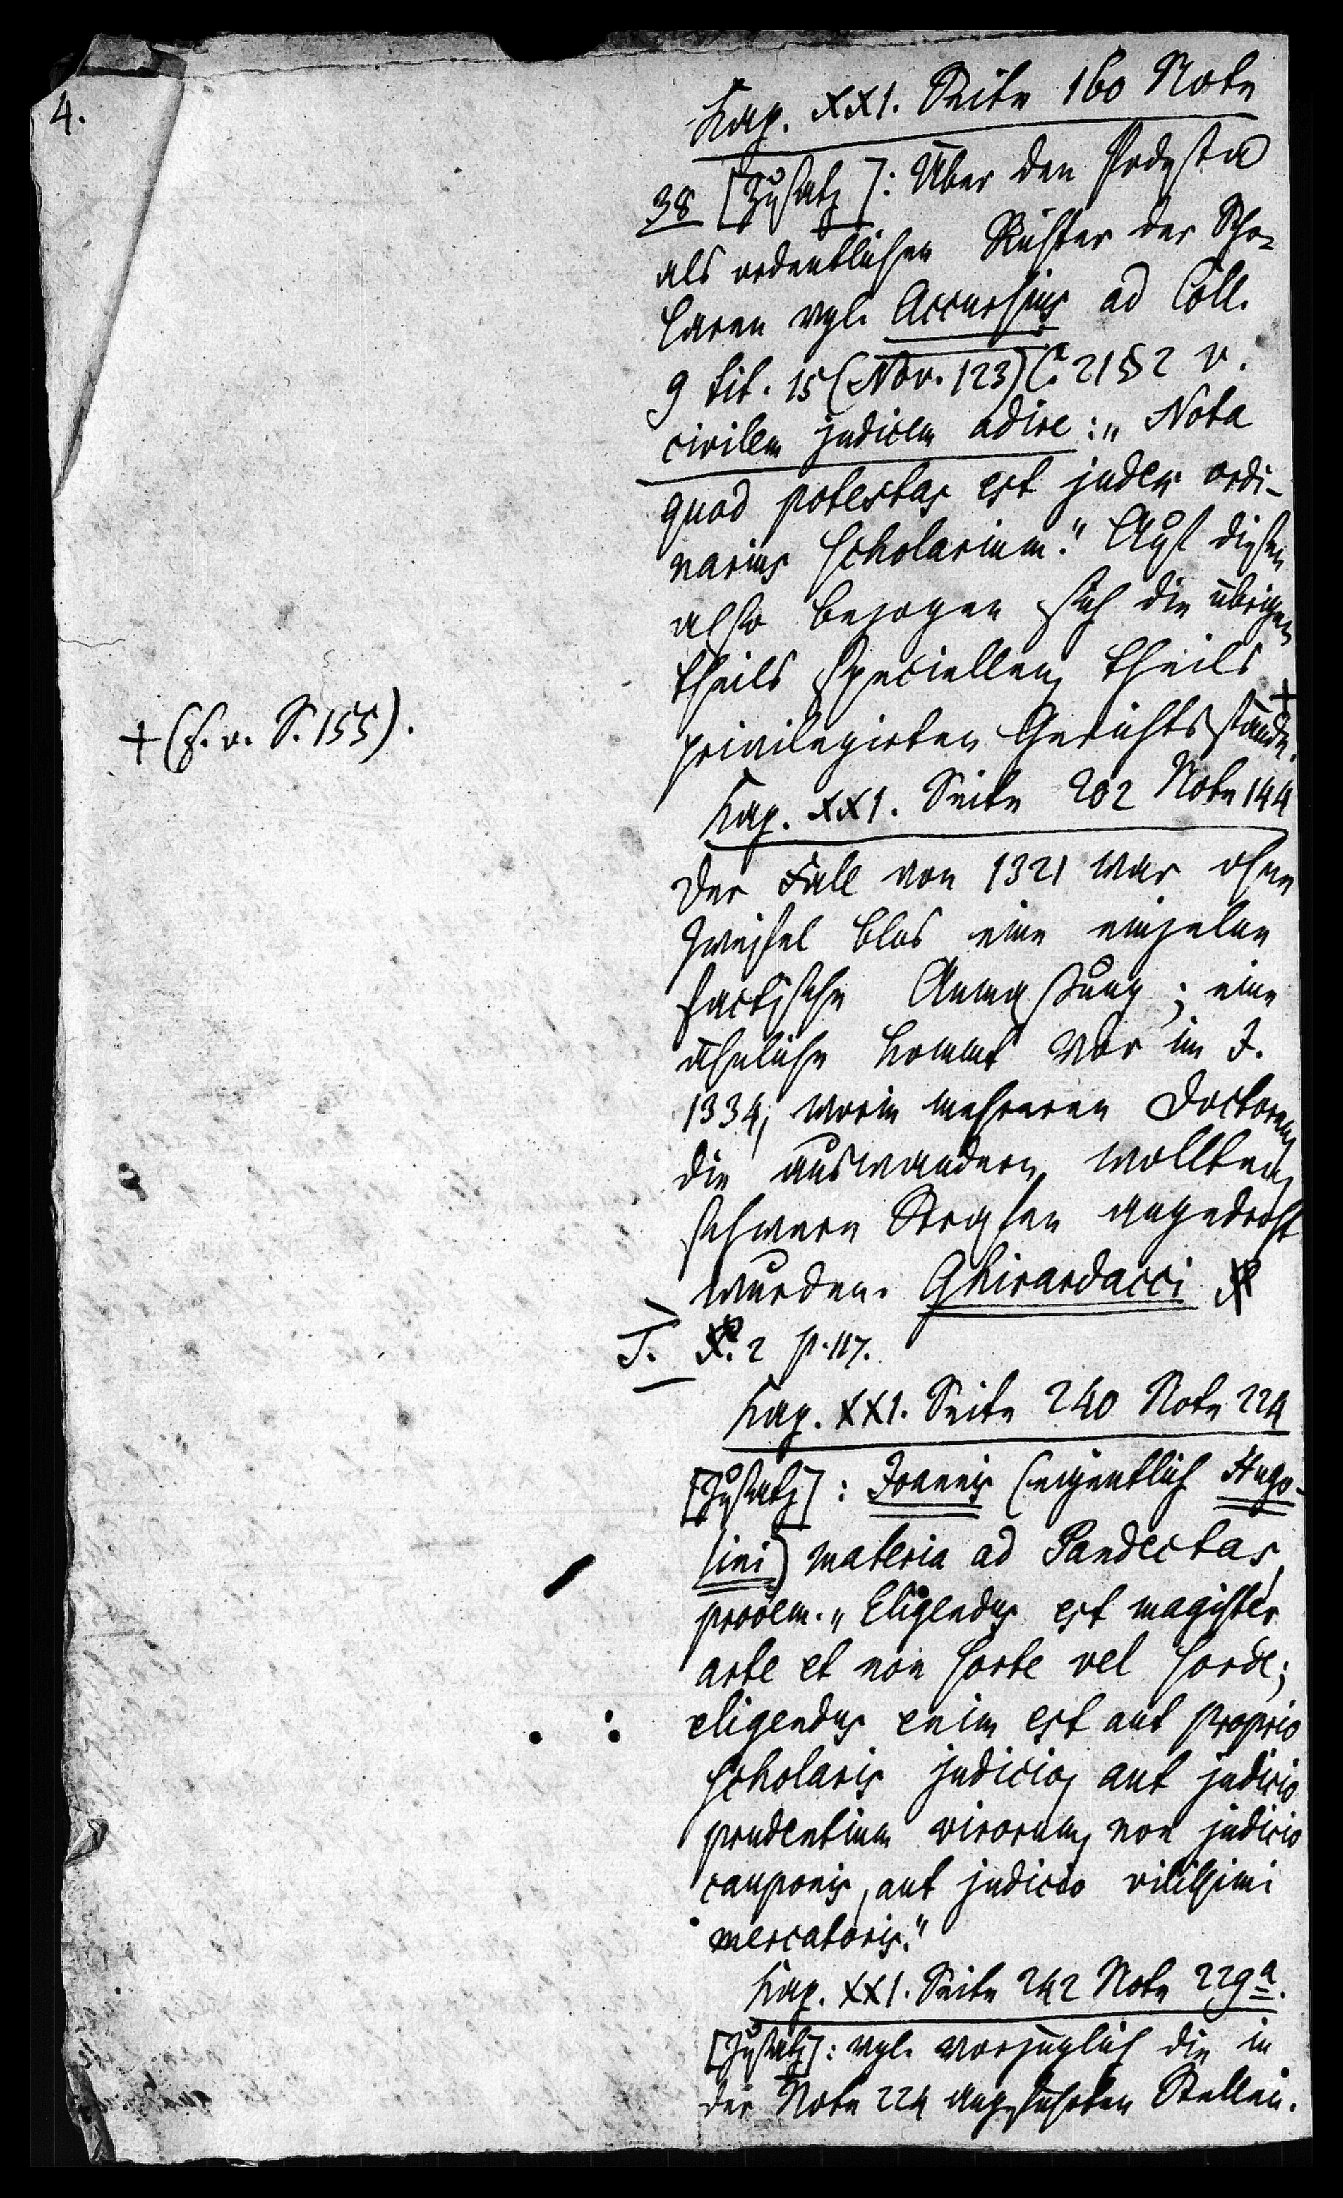 4.
Kap. XXI. Seite 160 Note
38 [Zusatz]: Über den Podesta
als ordentlichen Richter der Scho-
laren vgl. Accursius ad Coll.
9 tit. 15 (Nov. 123) C. 21 § 2 v.
civilem judicem adire: „Nota
quod potestas est judex ordi-
narius scholarium.“ Auf diesen
also bezogen sich die übrigen
theils speciellen, theils
privilegirten Gerichtsstände. +
+ (s. v. S. 155).
Kap. XXI. Seite 202 Note 144
Der Fall von 1321 war ohne
Zweifel blos eine einzelne
factische Anmaßung; eine
ähnliche kommt vor im J.
1334, worin mehreren Doctoren,
die auswandern wollten,
schwere Strafen angedroht
wurden. Ghirardacci
T. 2 p. 117.
Kap. XXI. Seite 240 Note 224
[Zusatz]: Joannis (eigentlich Hugo-
lini) materia ad Pandectas,
prooem. „Eligendus est magister
arte et non sorte vel sorde;
eligendus enim est aut proprio
scholaris judicio, aut judicio
prudentium virorum, non judicio
cauponis, aut judicio vilissimi
mercatoris.“
Kap. XXI. Seite 242 Note 229a.
[Zusatz]: vgl. vorzüglich die in
der Note 224 angeführten Stellen.